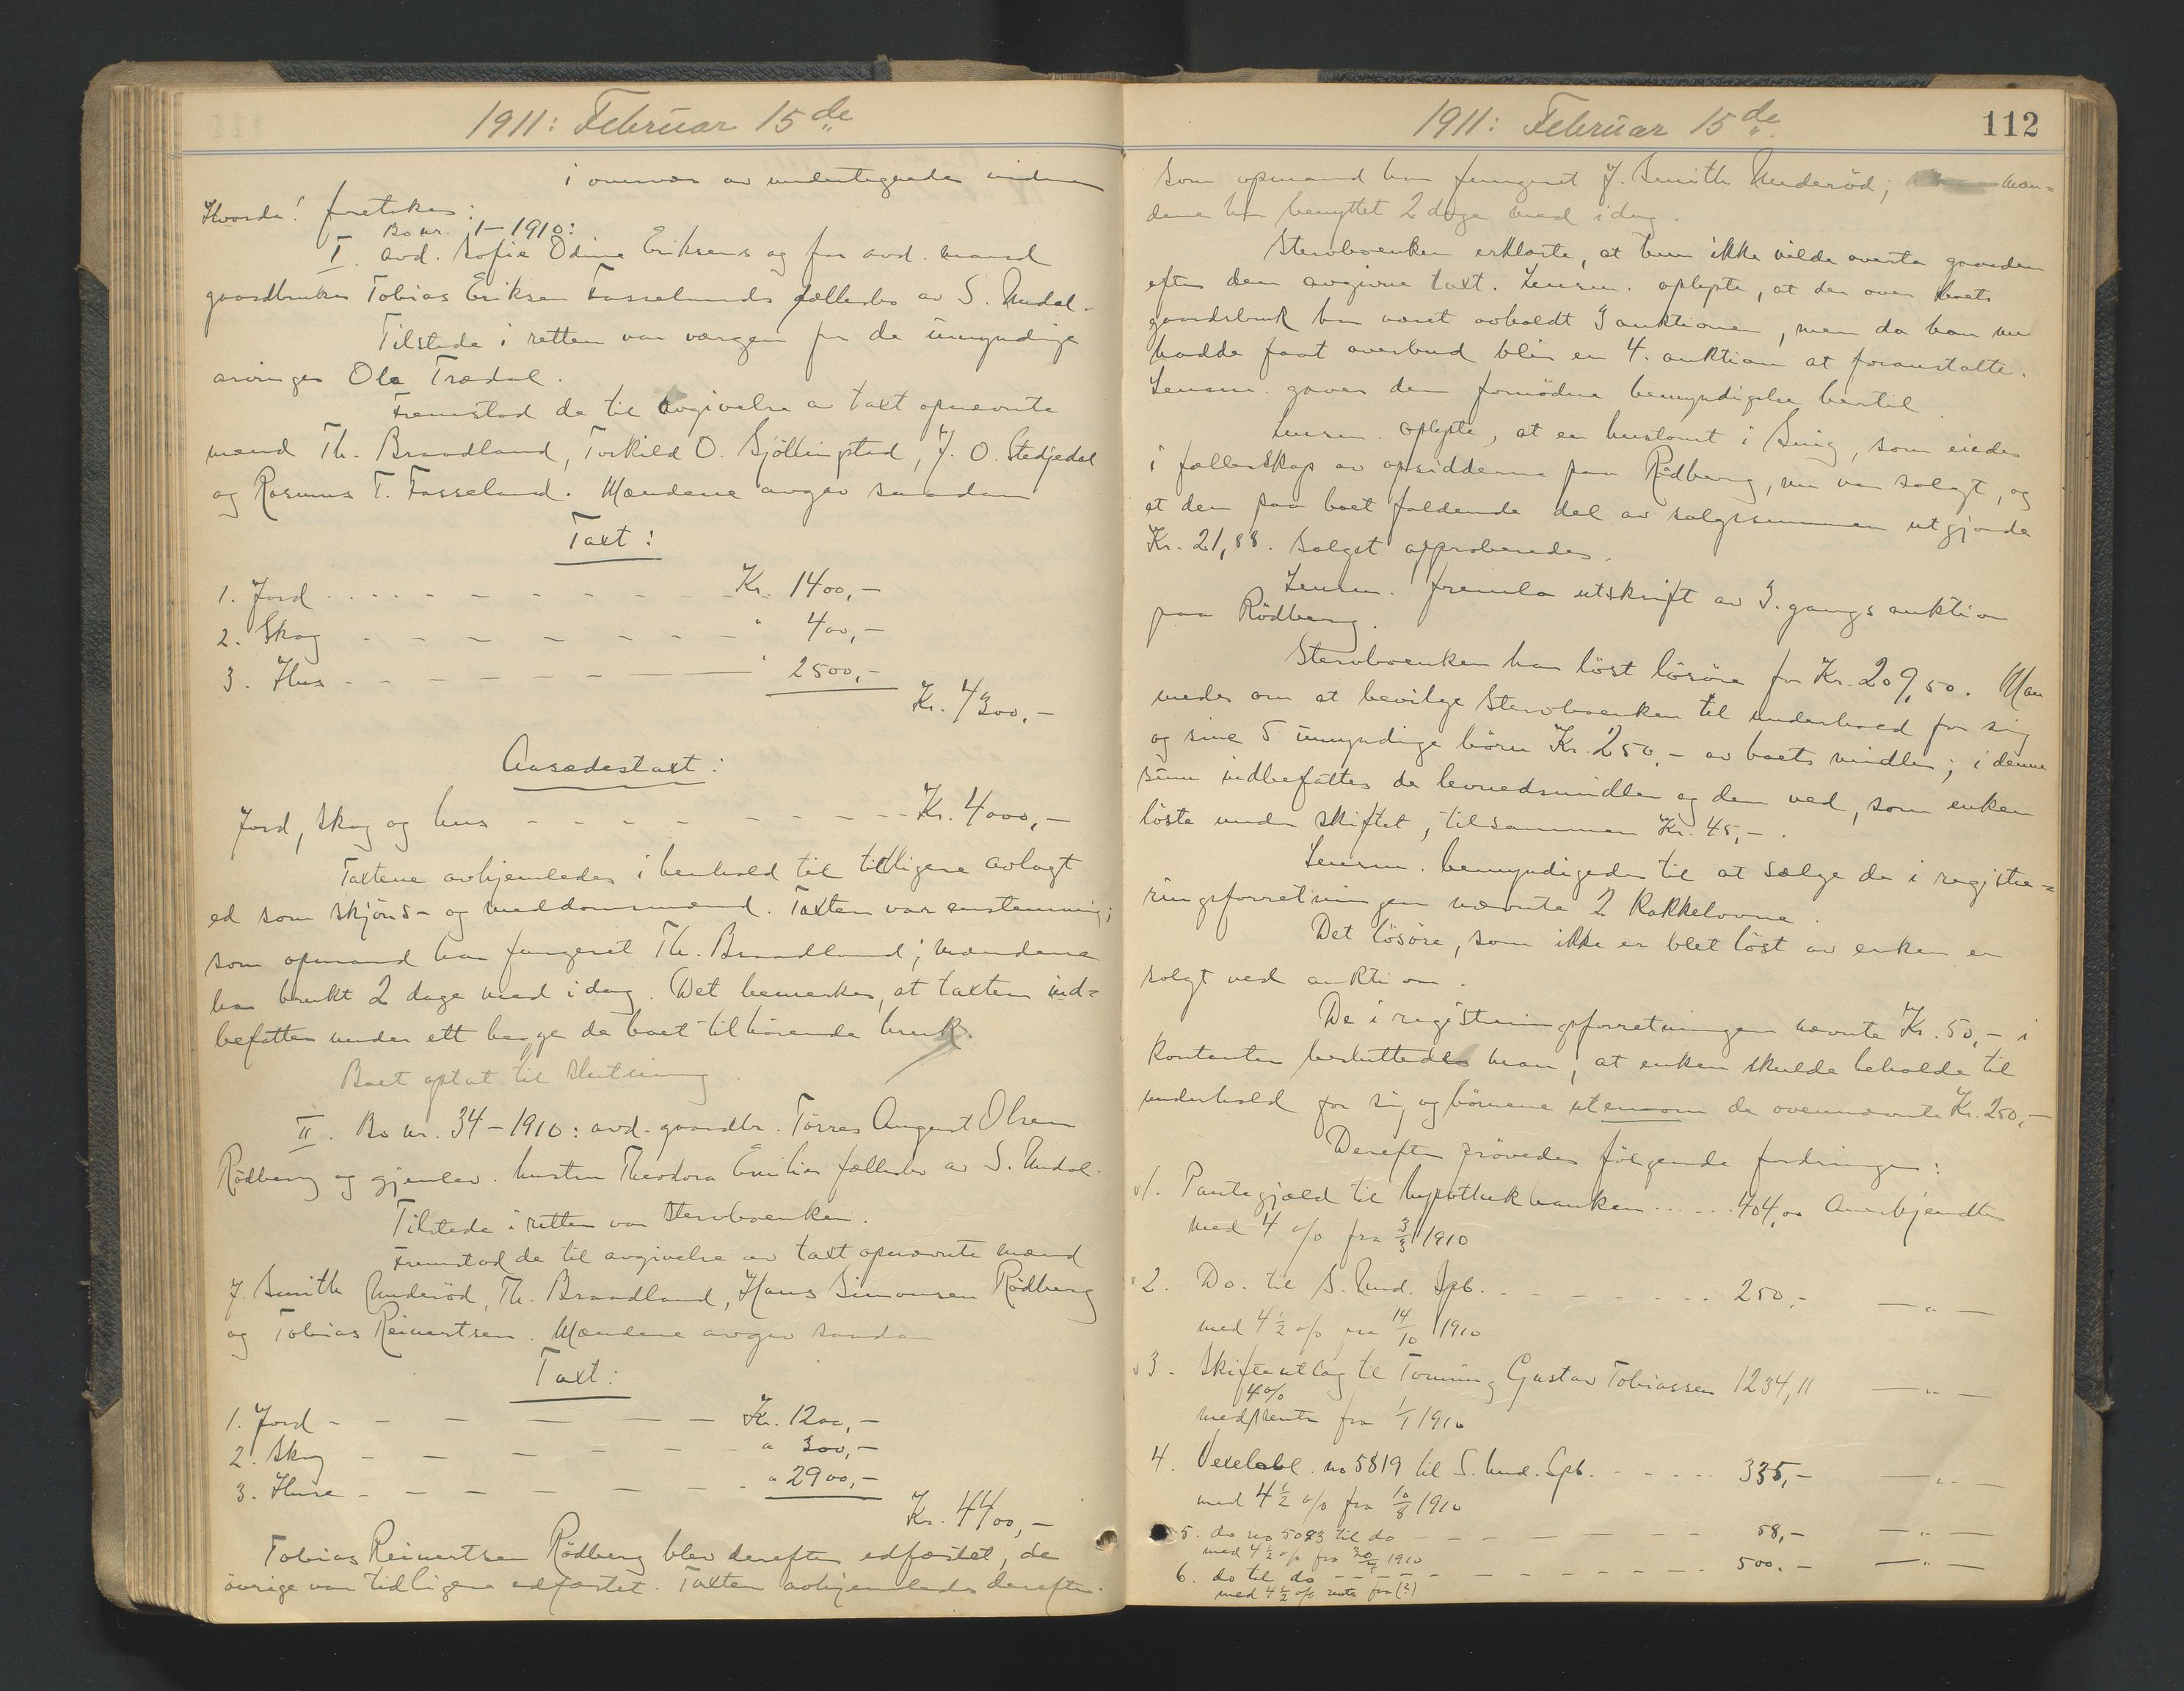 1911: Februar 15de
i overvær av undertegnede vidner
Hvorda! foretokes:
Bo nr. 1-1910:
I. avd. Sofie Odine Eriksens og før avd. mand
gaardbruker Tobias Eriksen Fasselands fællesbo av S. Undal.
Tilstede i retten var værgen for de umyndige
arvinger Ola Trædal.
Fremstod de til avgivelse av taxt opnævnte
mænd Th. Braadland, Torkild O. Gjöllingstad, J. O. Stedjedal
og Rasmus T. Fasseland. Mændene avgav saadan
Taxt:
1. Jord . . . . - - - - - - - Kr. 1400,-
2. Skog - - - - - - - " 400,-
3. Hus - - - - - - - " 2500,-
Kr. 4300,-
Aasædestaxt:
Jord, skog og hus - - - - - - - - - Kr. 4000,-
Taxtene avhjemledes i henhold til tidligere avlagt
ed som skjöns- og meddomsmænd. Taxten var enstemmig;
som opmand har fungeret Th. Braadland; mændene
har brukt 2 dage med idag. Det bemerkes, at taxten ind=
befatter under ett begge de boet tilhörende bruk.
Boet optat til slutning.
II. Bo nr. 34-1910: avd. gaardbr. Törres August Olsen
Rödberg og gjenlev. hustru Theodora Emilies fællesbo av S. Undal.
Tilstede i retten var Stervboenken.
Fremstod de til avgivelse av taxt opnævnte mænd
J. Smith Underöd, Th. Braadland, Hans Simonsen Rödberg
og Tobias Reinertsen. Mændene avgav saadan
Taxt:
1. Jord - - - - - - - Kr. 1200,-
2. Skog - - - - - - - " 300,-
3. Huse - - - - - - - " 2900,-
Kr. 4400,-
Tobias Reinertsen Rödberg blev derefter edfæstet, de
övrige var tidligere edfæstet. Taxten avhjemledes derefter.
1911: Februar 15de.
112
Som opmand har fungeret J. Smith Underöd; mæn=
dene har benyttet 2 dage med idag.
Stervboenken erklærte, at hun ikke vilde overta gaarden
efter den avgivne taxt. Lensm. oplyste, at der over boets
gaardsbruk har været avholdt 3 auktioner, men da han nu
hadde faat overbud blir en 4. auktion at foranstalte.
Lensm. gaves den fornödne bemyndigelse hertil.
Lensm. oplyste, at en hustomt i Snig, som eiedes
i fællesskap av opsidderne paa Rödberg, nu var solgt, og
at den paa boet faldende del av salgssummen utgjorde
Kr. 21,88. Salget approberedes.
Lensm. fremla utskrift av 3. gangs auktion
paa Rödberg.
Stervboenken har löst lösöre for Kr. 209,50. Man
enedes om at bevilge Stervboenken til underhold for sig
og sine 5 umyndige börn Kr. 250,- av boets midler; i denne
sum indbefattes de levnedsmidler og den ved, som enken
löste under skiftet, tilsammen Kr. 45,-.
Lensm. bemyndigedes til at sælge de i registre=
ringsforretningen nævnte 2 kakkelovne.
Det lösöre, som ikke er blet löst av enken er
solgt ved auktion.
De i registreringsforretningen nævnte Kr. 50,- i
kontanter besluttedes man, at enken skulde beholde til
underhold for sig og börnene utenom de ovennævnte Kr. 250,-
Derefter prövedes fölgende fordringer:
1. Pantegjæld til hypothekbanken . . . . . . 404,00 Anerkjendtes
med 4 o/o fra 3/3 1910
2. Do. til S. Und. Spb. - - - - - - - - 250,- — " —
med 4 1/2 o/o fra 14/10 1910
3. Skifteutlæg til Tönning Gustav Tobiassen 1234,11 — " —
4 o/o
med rente fra 1/1 1910
4. Vexelobl. no 5819 til S. Und. Spb. - - - - 335,- — " —
med 4 1/2 o/o fra 10/8 1910
5. do no 5083 til do - - - - - - - - - 58,- — " —
med 4 1/2 o/o fra 20/7 1910
6. do til do - - - - - - - - - - - 500.- — " —
med 4 1/2 o/o rente fra (?)